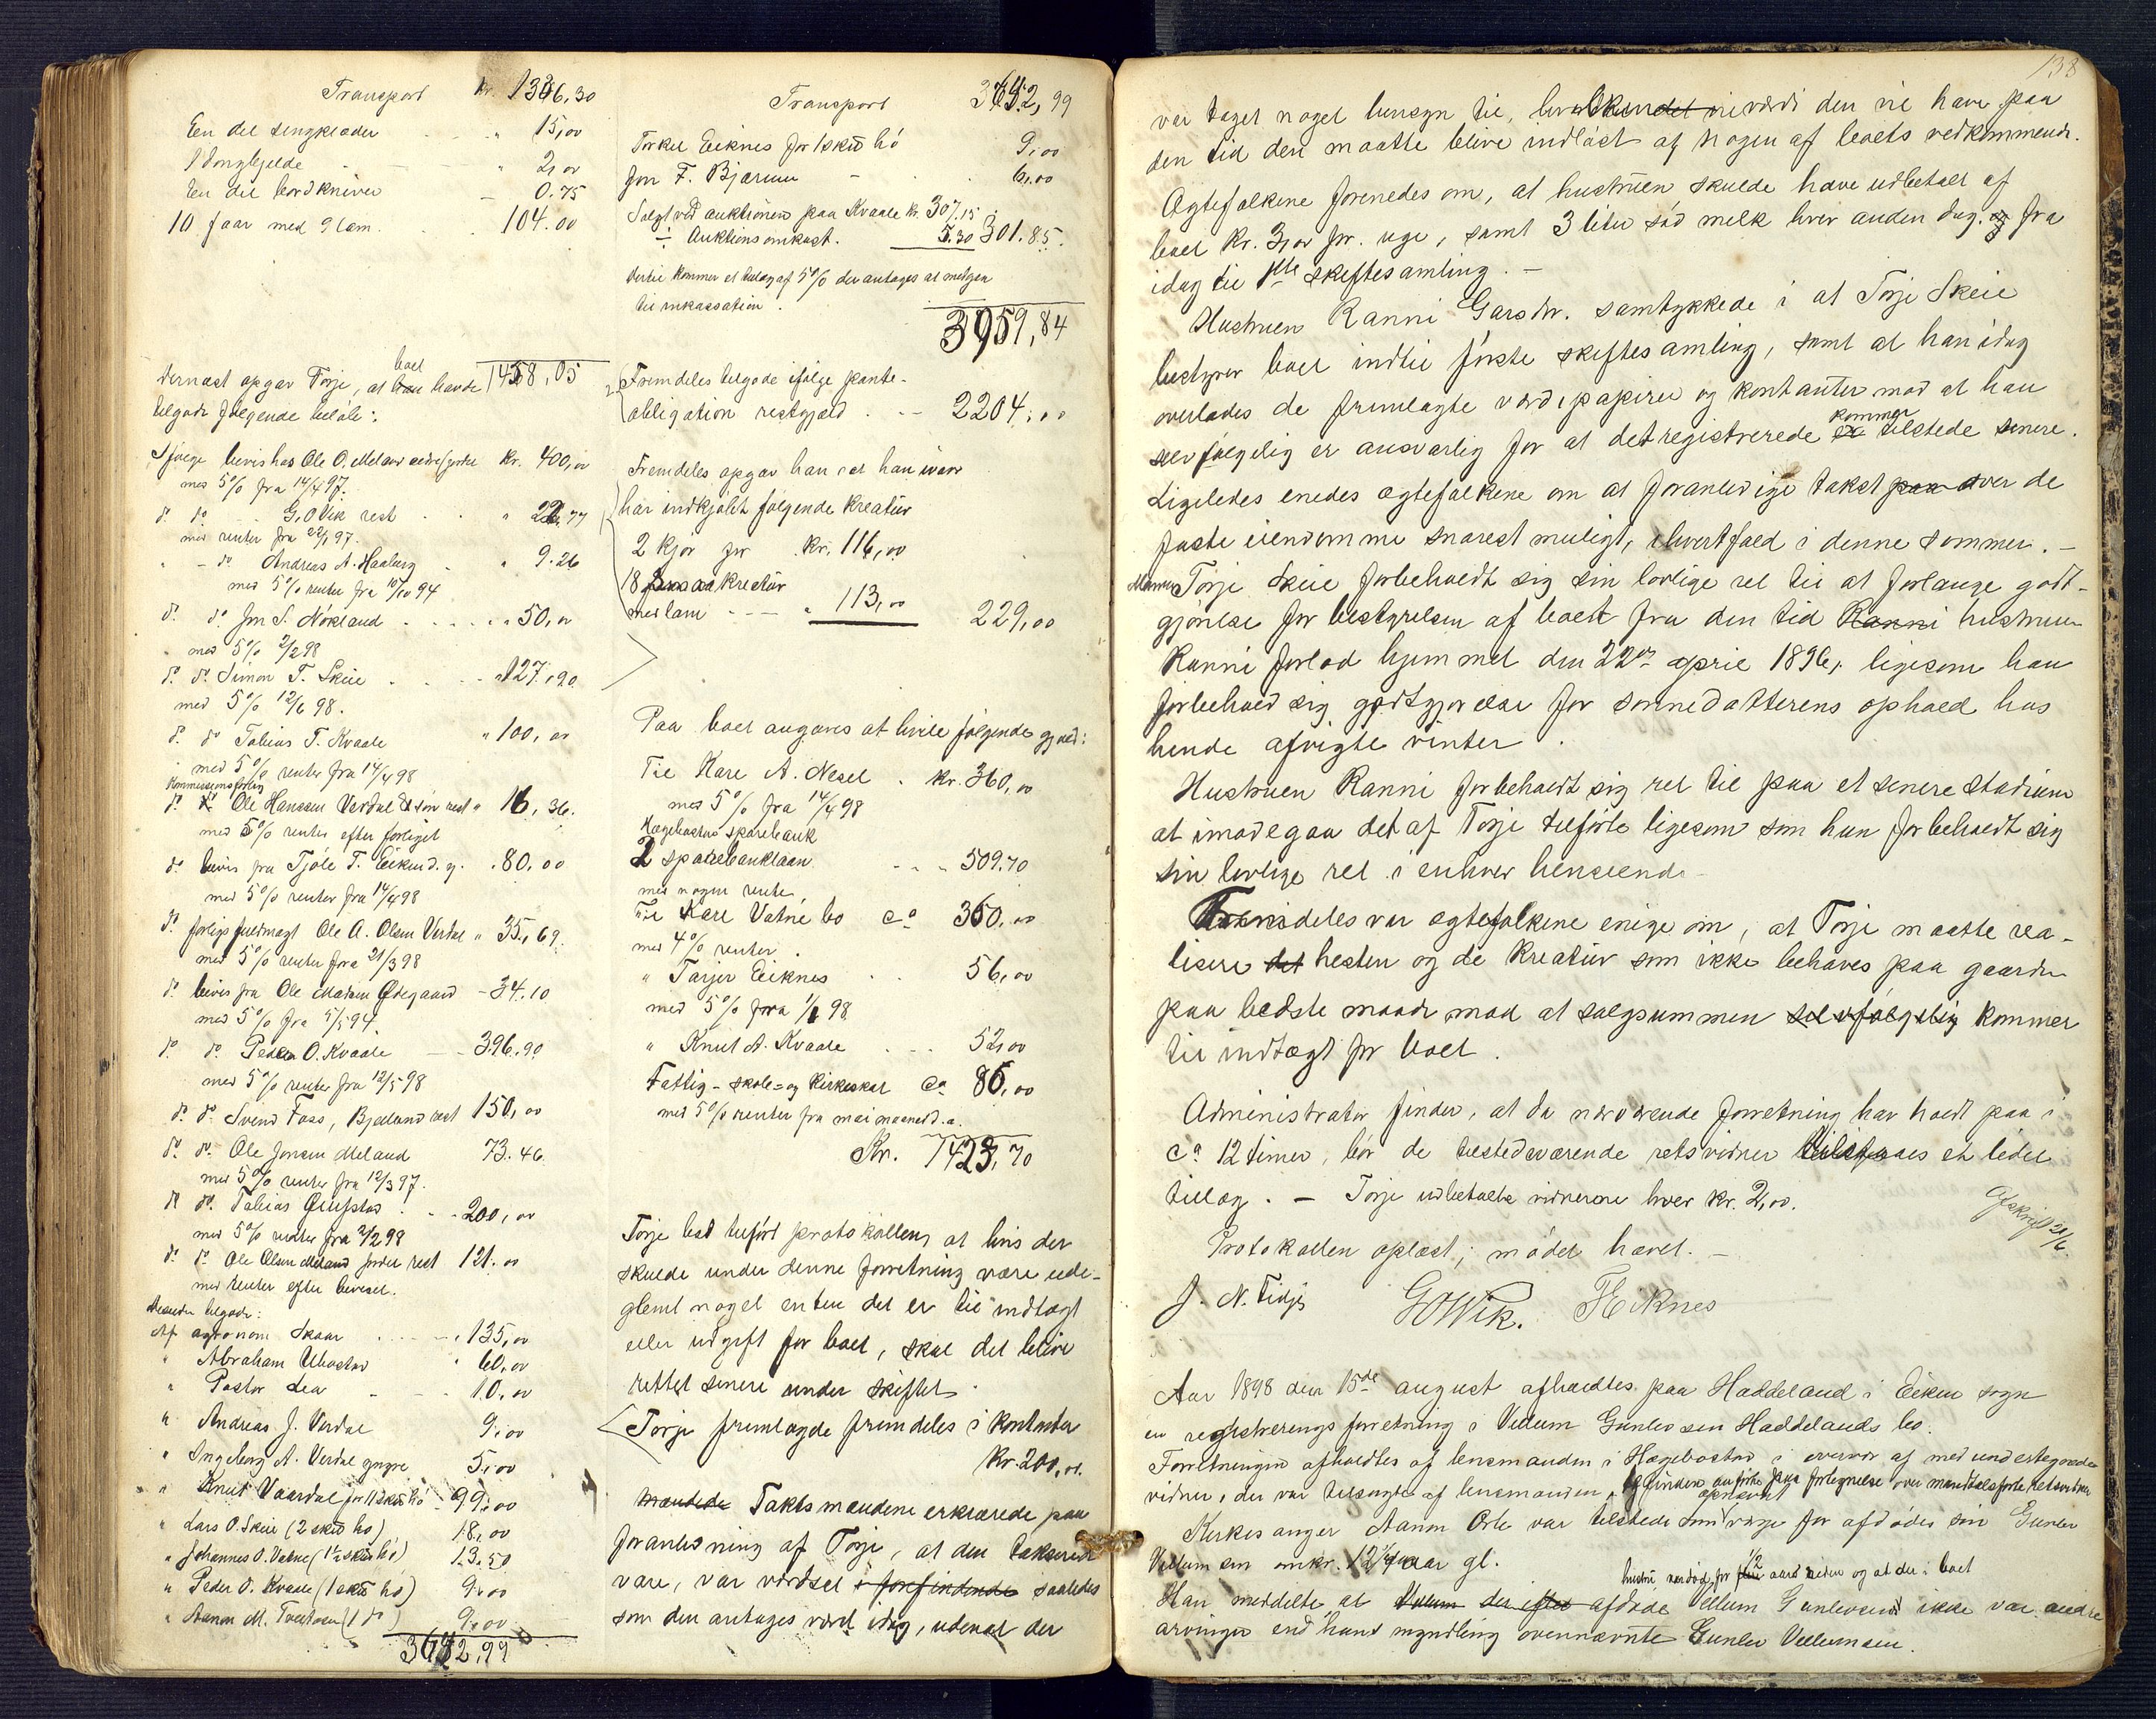 Transport kr. 1336,30
En del sengklæder " 15,00
1 Dongkjelde " 2,00
En del bordkniver - 0.75
10 faar med 9 lam. 104.00
1458,05
Dernæst opgav Torje, at boet havde
tilgode følgende beløb:
Ifølge bevis hos Ole O. Meland kr. 400,00
med 5% fra 14/4 97.
do do G. O Vik rest " 22,77
med renter fra 22/1 97.
" - do Andreas A. Haaberg " 9.26
med 5% renter fra 10/10 94
do do Jon S. Nökland " 50,00
med 5% 2/2 98
do. do. Simon T. Skeie " 127,90
med 5% 12/6 98.
do. do Tobias T. Kvaale " 100,00
med 5% renter fra 14/4 98
Kommissionsforlig
do. Ole Hanssen Verdal & søn rest " 16,36.
med 5% renter efter forliget
do bevis fra Tjöle T. Eiken d. y. " 80,00
med 5% renter fra 14/4 98
do forligsfuldmagt Ole A. Olsen Verdal " 35,69.
med 5% renter fra 21/3 98
do bevis fra Ole Madsen Ødegaard - 34.10
med 5% fra 5/5 94.
do. do. Peder O. Kvaale - 396.90
med 5% renter fra 12/5 98
do do. Svend Foss, Bjelland rest 150,00
do. do. Ole Jonsen Meland 73.46
med 5% renter fra 12/3 97.
do do. Tobias - 200,00
med 5% renter fra 2/2 98
do. do. Ole Olsen Meland rest 121.00
med renter efter beviset.
Desuden tilgode:
Af agronom Skaar " 135,00
" Abraham Ubostad " 60,00
" Pastor Lea - 10,00
" Andreas J. Verdal 9,00
" Ingeborg A. Verdal yngre 5,00
" Knut Vaardal for 11 skpd hö 99,00
" Lars O. Skeie (2 skpd hö) 18,00
" Johannes O. Vatne (1½ skpd hö) 13.50
" Peder O. Kvaale (1 skpd hö) 9,00
" Aanon M. Tveitosen (1 do) 9,00
3642,99
Transport 3642,99
Torkel Eiknes for 1 skpd hö 9,00
Jon F. Bjærum - 6,00
Solgt ved auktionen paa Kvaale kr. 307.15
÷ Auktionsomkost. 5.30 301.85.
dertil kommer et tillæg af 5% der antages at medgaa
til inkassation.
3959,84
Fremdeles tilgode ifølge pante-
obligation restgjæld - 2204,00
Fremdeles opgav han at han ivaar
har indkjöbt følgende kreatur
2 kjör for kr. 116,00
18 smaakreatur
med lam - " 113,00 229,00
Paa boet angaves at hvile følgende gjæld:
Til Kare A. Nesel kr. 360,00
med 5% fra 14/4 98
Hægebostad sparebank
2 sparebanklaan - 509.70
med nogen rente
Til Kare Vatne bo ca 360,00
med 4% renter.
" Tarjer Eiknes 56,00
med 5% fra 1/1 98
" Knut A. Kvaale 52,00
Fattig- skole- og kirkeskat ca 86,00
med 5% renter fra mai maaned d.a.
Kr. 1423,70
Torje bad tilført protokollen, at hvis der
skulde under denne forretning være ude-
glemt noget enten det er til indtægt
eller udgift for boet, skal det blive
rettet senere under skiftet.
Torje fremlagde fremdeles i kontanter
kr. 200,00.
Takstmændene erklærede paa
foranledning af Torje, at den takserede
vare, var værdsat i forefindende saaledes
som den antages værd idag, uden at der
138
var taget noget hensyn til, hvilken værdi den vil have paa
den tid den maatte blive indløst af nogen af boets vedkommende.
Ægtefolkene forenedes om, at hustruen skulde have udbetalt af
boet kr. 3,00 pr. uge, samt 3 liter sød melk hver anden dag. fra
idag til 1ste skiftesamling. -
Hustruen Ranni Garsdtr. samtykkede i at Torje Skeie
bestyrer boet indtil første skiftesamling, samt at han idag
overlades de fremlagte værdipapirer og kontanter mod at han
kommer
selvfølgelig er ansvarlig for at det registrerede er tilstede senere.
Ligeledes enedes ægtefolkene om at foranledige takst paa over de
faste eiendomme snarest muligt, ihvertfald i denne sommer. -
Manden Torje Skeie forbeholdt sig sin lovlige ret til at forlange godt-
gjörelse for bestyrelsen af boet fra den tid Ranni hustruen
Ranni forlod hjemmet den 22de april 1896, ligesom han
forbeholdt sig godtgjørelse for sønnedatterens ophold hos
hende afvigte vinter.
Hustruen Ranni forbeholdt sig ret til paa et senere stadium
at imødegaa det af Torje tilførte ligesom hun forbeholdt sig
sin lovlige ret i enhver henseende.
Fremdeles var ægtefolkene enige om, at Torje maatte rea-
lisere det hesten og de kreatur som ikke behøves paa gaarden
paa bedste maade mod at salgsummen selvfølgelig kommer
til indtægt for boet.
Administrator finder, at da nærværende forretning har holdt paa i
ca 12 timer, bør de tilstedeværende retsvidner tilstaaes et lidet
tillæg. - Torje udbetalte vidnerne hver kr. 2,00.
Afskrift 20/6.
Protokollen oplæst; mødet hævet. -
J. N. Tidjs GOWik. TEiknes
Aar 1898 den 15de august afholdtes paa Haddeland i Eiken sogn
en registreringsforretning i Vellum Gunlevsen Haddelands bo.
Forretningen afholdtes af lensmanden i Hægebostad i overvær af med undertegnede
vidner, der var tilsagte af lensmanden, og findes anførte paa fortegnelse over mandtalsførte retsvidner
opnævnt
Kirkesanger Aanon Orte var tilstede som værge for afdødes søn Gunlev
Vellumsen omkr. 12¼ aar gl.
hustru, var død for 1/2 aar siden og at der i boet
Han meddelte at Vellum der efter afdøde Vellum Gunlevsen ikke var andre
arvinger end hans myndling ovennævnte Gunlev Vellumsen.